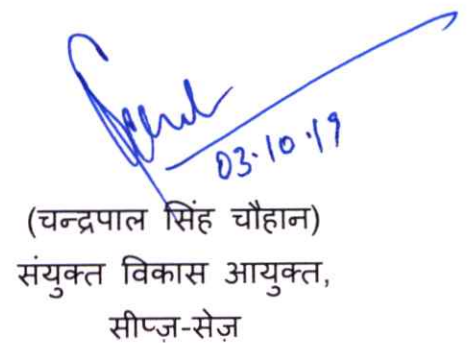 03.10.19
(चन्द्रपाल सिंह चौहान)
संयुक्त विकास आयुक्त,
सीप्ज़-सेज़